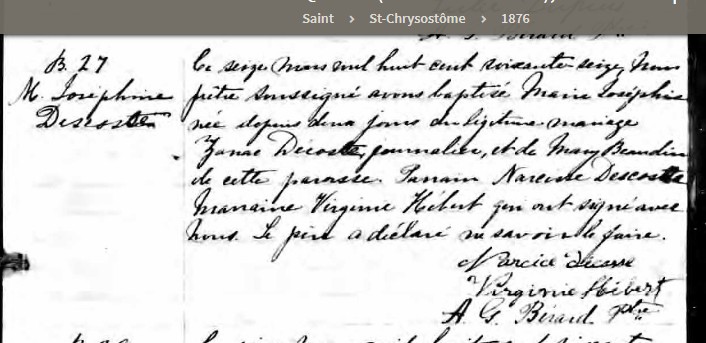 Saint > St-Chrysostôme > 1876
A. G. Bérard Ptre
B. 27
M. Joséphine
Descoste
Le seize mars mil huit cent soixante seize, Nous
prêtre soussigné avons baptisé Marie Joséphine
née depuis deux jours du légitime mariage
Décoste, journalier, et de Mary Beaudin
de cette paroisse. Parrain Narcisse Descoste
Marraine Virginie Hébert qui ont signé avec
Nous. Le père a déclaré ne savoir le faire.
Narcice
Virginie Hébert
A. G. Bérard Ptre